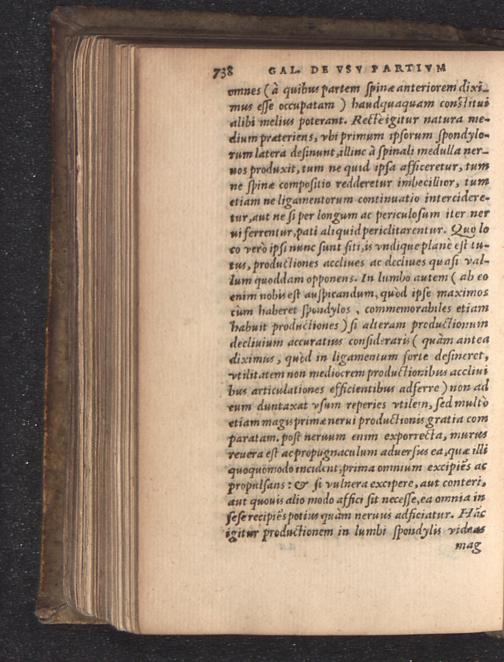 738 GAL. DE VSV PARTIVM
omnes (à quibus partem spinæ anteriorem dixi-
mus esse occupatam) haudquaquam constitui
alibi melius poterant. Recte igitur natura me-
dium præteriens, vbi primum ipsorum spondylo-
rum latera desinunt, illinc à spinali medulla ner-
uos produxit, tum ne quid ipsa afficeretur, tum
ne spinæ compositio redderetur imbecillior, tum
etiam ne ligamentorum continuatio intercidere-
tur, aut ne si per longum ac periculosum iter ner
ui ferrentur, pati aliquid periclitarentur. Quo lo
co verò ipsi nunc sunt siti, is vndique planè est tu-
tus, productiones accliues ac decliues quasi val-
lum quoddam opponens. In lumbo autem (ab eo
enim nobis est auspicandum, quòd ipse maximos
cùm haberet spondylos, commemorabiles etiam
habuit productiones) si alteram productionum
decliuium accuratius consideraris (quàm antea
diximus, quòd in ligamentum forte desineret,
vtilitatem non mediocrem productionibus accliui
bus articulationes efficientibus adferre) non ad
eum duntaxat vsum reperies vtilem, sed multò
etiam magis primæ nerui productionis gratia com
paratam. post neruum enim exporrecta, murus
reuera est ac propugnaculum aduersus ea, quæ illi
quoquomodo incidunt, prima omnium excipiēs ac
propulsans: & si vulnera excipere, aut conteri,
aut quouis alio modo affici sit necesse, ea omnia in
sese recipiēs potius quàm neruus adficiatur. Hāc
igitur productionem in lumbi spondylis videas
mag